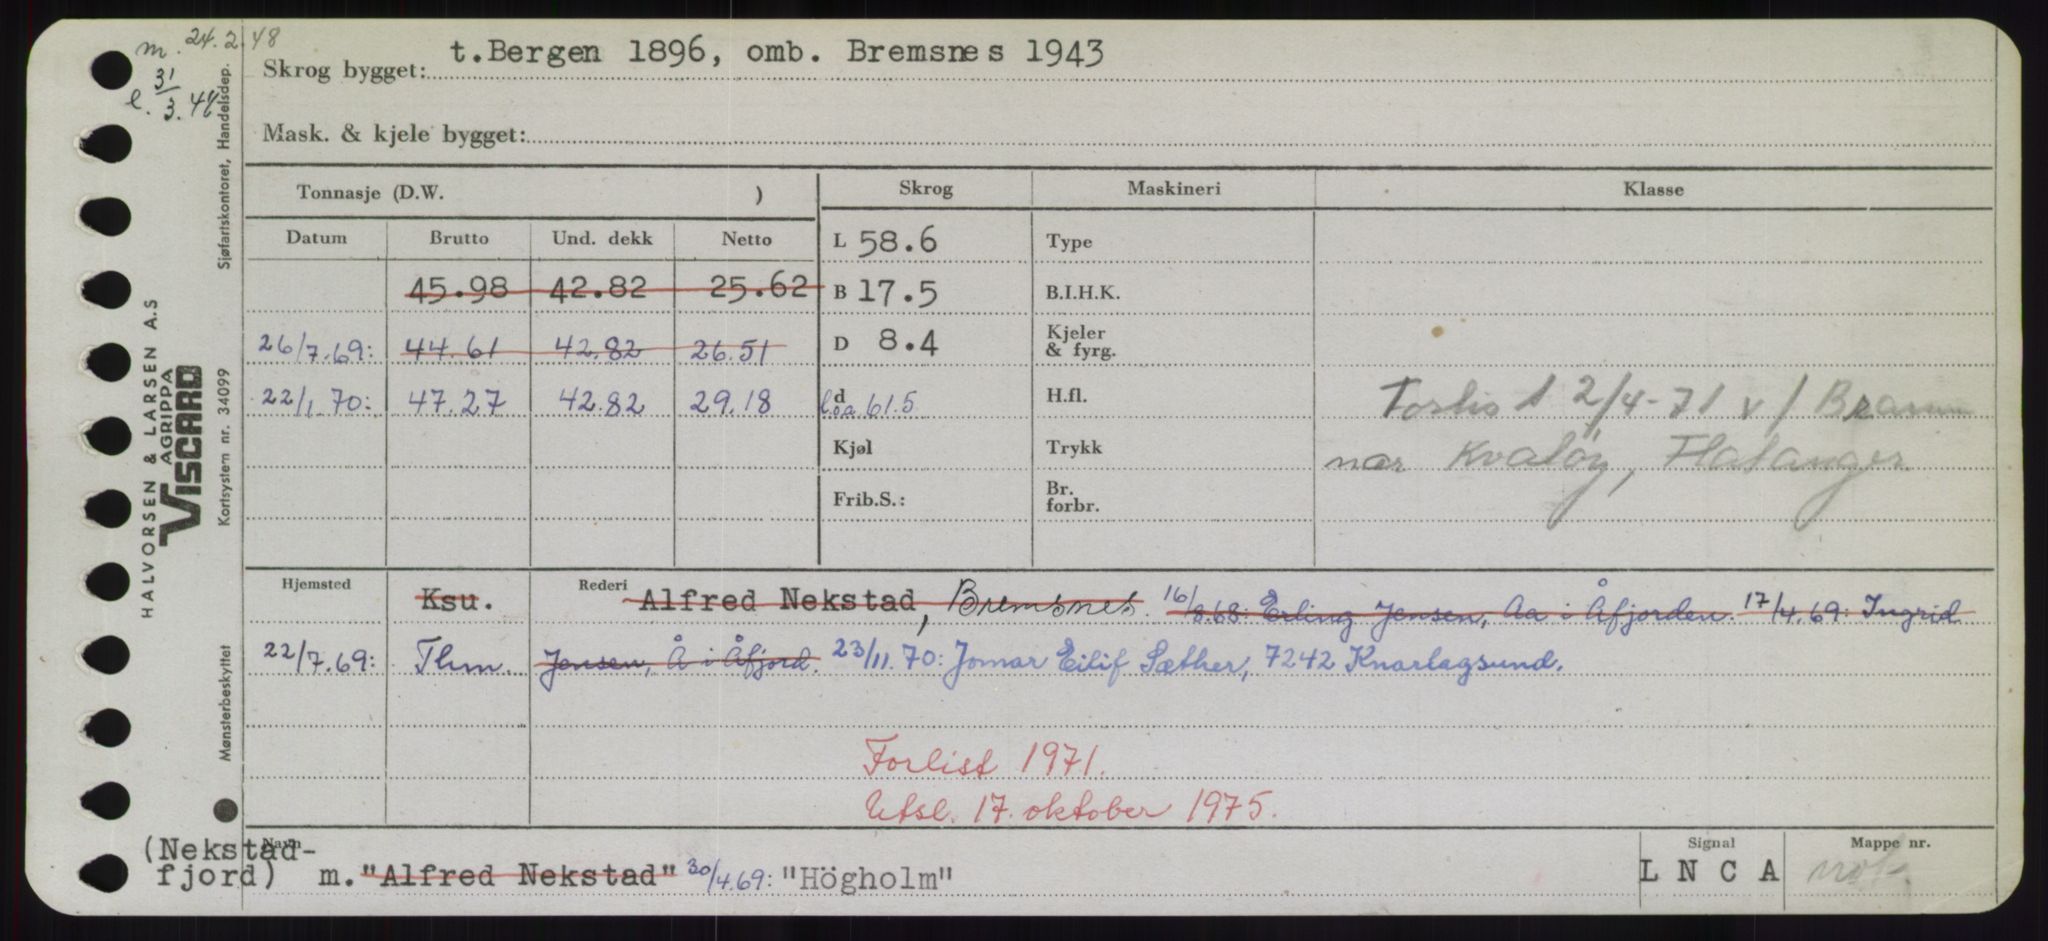 m. 24.2.48
l. 31/3.48
Skrog bygget: t.Bergen 1896, omb. Bremsnes 1943
Mask. & kjele bygget:
Tonnasje (D.W. )
Skrog Maskineri Klasse
Datum Brutto Und. dekk Netto
L 58.6 Type
45.98 42.82 25.62 B 17.5 B.I.H.K.
26/7.69: 44.61 42.82 26.51 D 8.4 Kjeler & fyrg.
22/1.70: 47.27 42.82 29.18 d loa 61.5 H.fl.
Forlis 2/4-71 v/
Kjøl Trykk
nær Kvaløy, Flatanger
Frib.S.: Br. forbr.
Hjemsted Rederi
Ksu. Alfred Nekstad, Bremsnes. 16/8.68: Erling Jensen, Aa i Åfjorden. 17/4.69: Ingrid
22/7.69: Thm. Jensen, Å i Åfjord. 23/11.70: Jomar Eilif Sæther, 7242 Knarlagsund.
Forlist 1971.
Utsl. 17. oktober 1975.
Navn Signal Mappe nr.
(Nekstad-
fjord) m. "Alfred Nekstad" 30/4.69: "Högholm" L N C A
HALVORSEN & LARSEN A.S
AGRIPPA
VISCARD
Sjøfartskontoret, Handelsdep.
Kortsystem nr. 34099
Mønsterbeskyttet